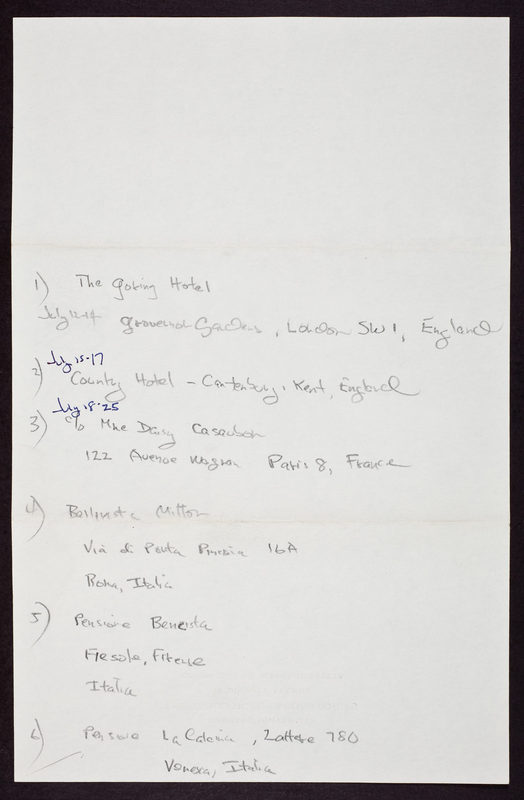 1) The Goring Hotel
July 12-14 Grovenor Gardens, London SW1, England
July 15-17
2) County Hotel - Canterbury, Kent, England
July 18-25
3) c/o Mme Daisy Casaubon
122 Avenue Wagram Paris 8, France
4) Bellavista Milton
Via di Porta Pinciana 16A
Roma, Italia
5) Pensione Bencista
Fiesole, Firenze
Italia
6) Pensione La Calcina, Zattere 780
Venezia, Italia